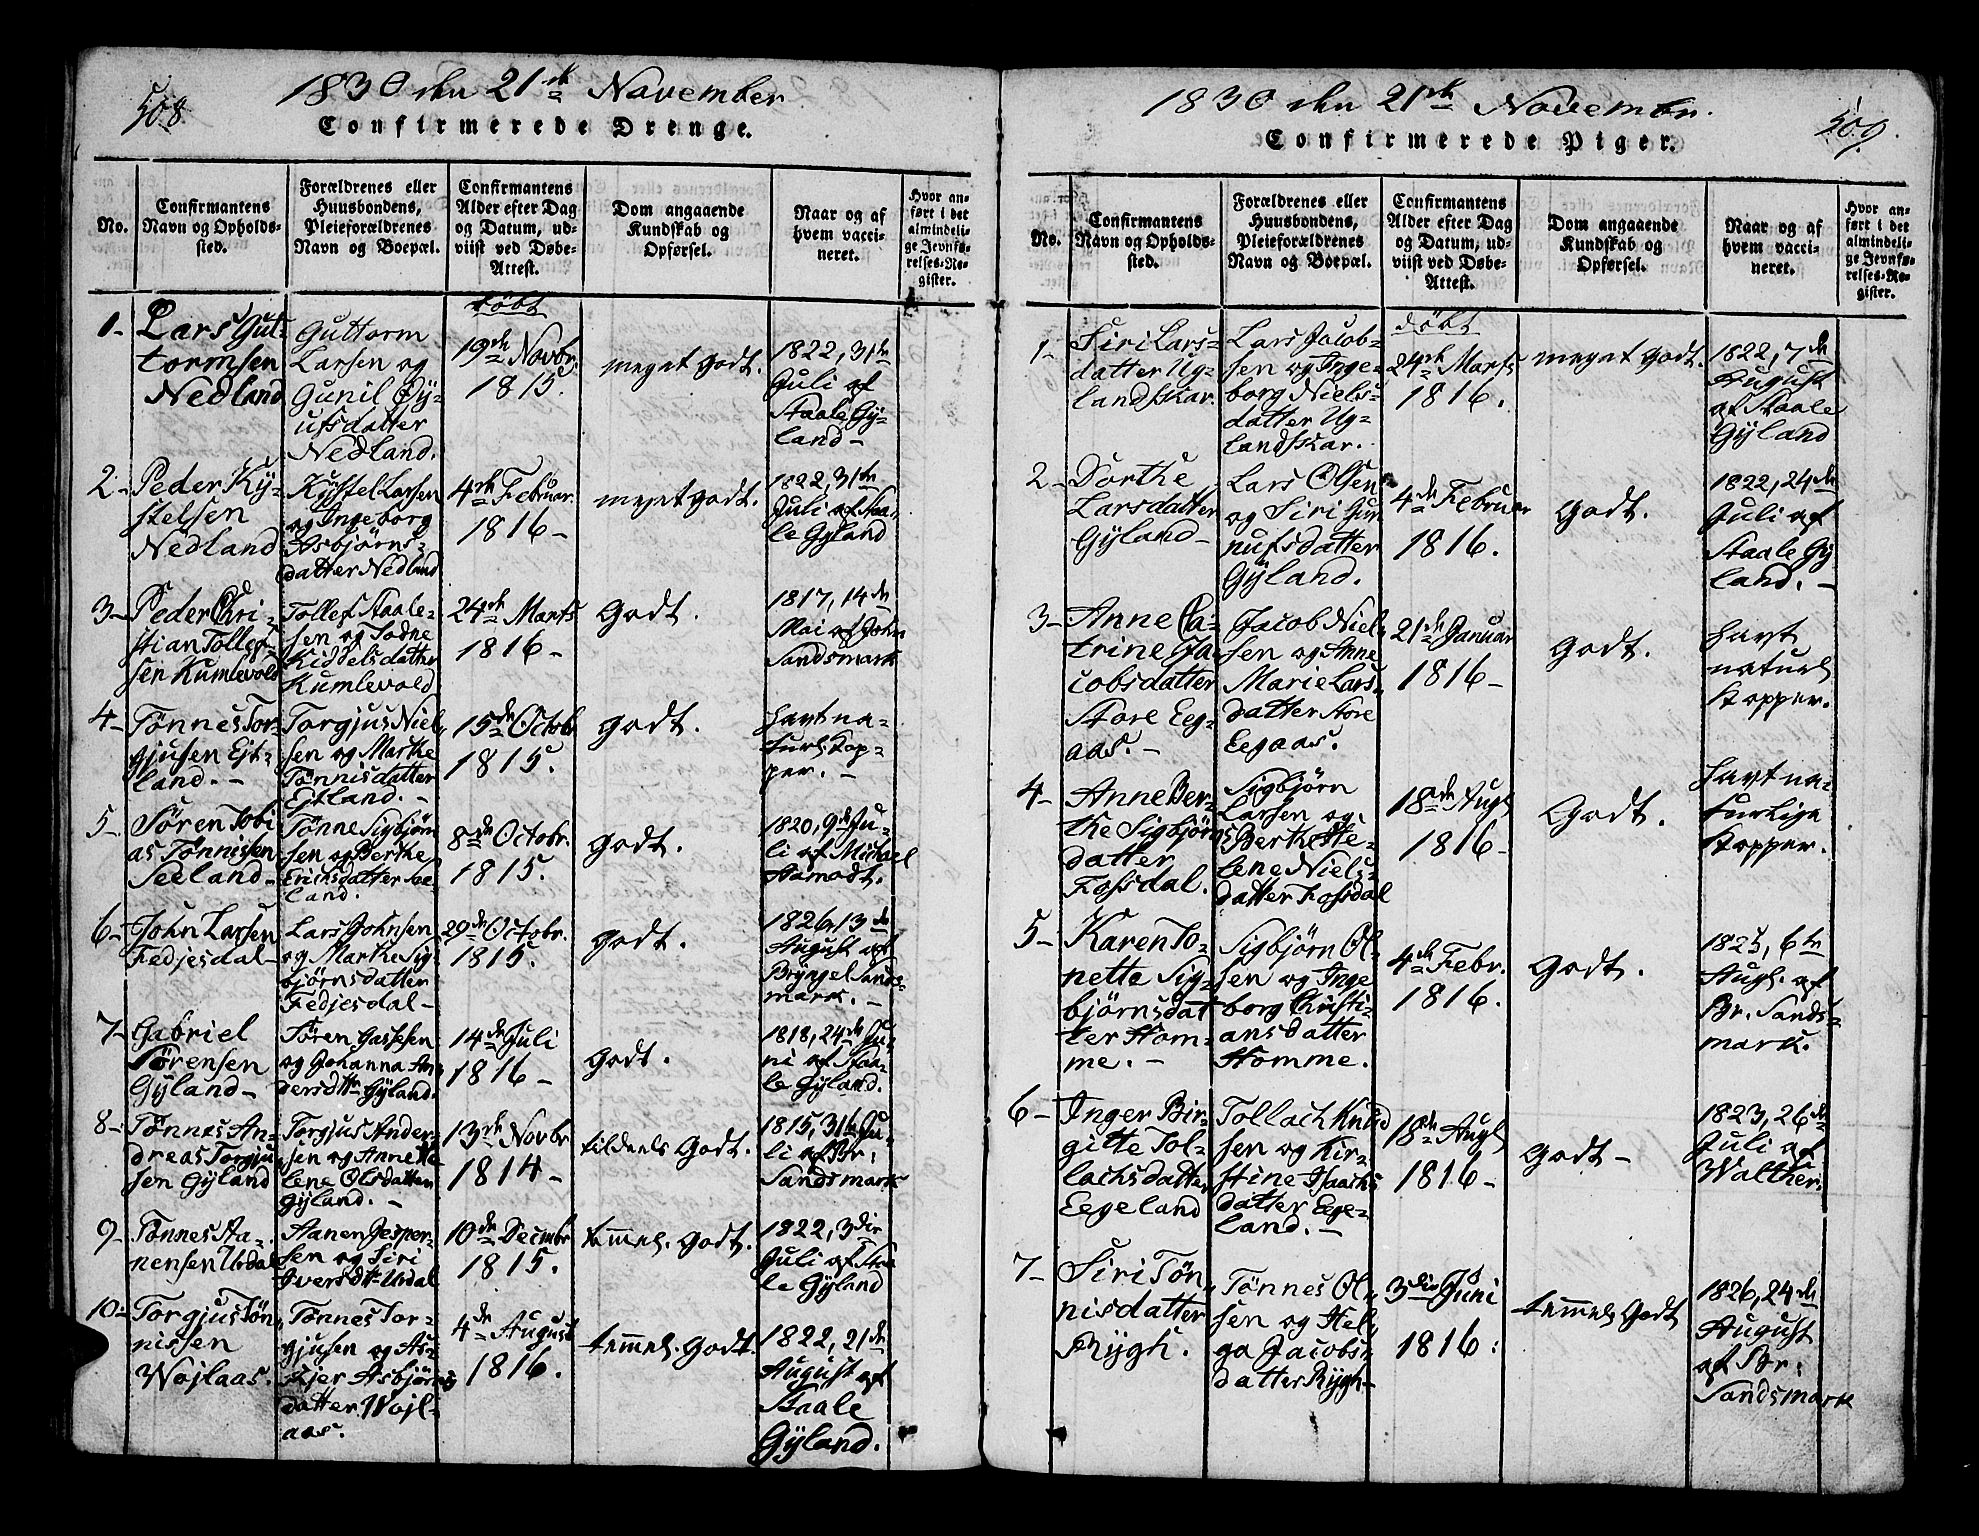 508.
1830 den 21de November
Confirmerede Drenge.
No.
Confirmantens
Navn og Opholds-
sted.
Forældrenes eller
Huusbondens,
Pleieforældrenes
Navn og Boepæl.
Confirmantens
Alder efter Dag
og Datum, ud-
viist ved Døbe-
Attest.
Dom angaaende
Kundskab og
Opførsel.
Naar og af
hvem vacci-
neret.
Hvor an-
ført i det
almindeli-
ge Jevnfø-
relses-Re-
gister.
døbt
1-
Lars Gut-
tormsen
Nedland
Guttorm
Larsen og
Gunil Øy-
ufsdatter
Nedland.
19de Novbr.
1815.
meget godt.
1822, 31te
Juli af
Staale Gy-
land-
2-
Peder Ky-
stelsen
Nedland
Kystel Larsen
og Ingeborg
Asbjørns-
datter Nedland
4de Februar.
1816-
meget godt.
1822, 31te
Juli af Staa-
le Gyland
3-
Peder Chri-
stian Tollef-
sen Kumlevold
Tollef Staale-
sen og Todne
Kiddelsdatter
Kumlevold
24de Marts
1816-
Godt.
1817, 14de
Mai af John
Sandsmark
4-
Tønnes Tor-
gjusen Ejt-
land.-
Torgjus Niel-
sen og Marthe
Tønnisdatter
Ejtland.-
15de Octobr
1815.
godt.
havt na-
turl. Kop-
per.-
5-
Søren Tobi
as Tønnissen
Seeland-
Tønne Sigbjørn
sen og Berthe
Erichsdatter See-
land.
8de Octobr.
1815.
godt.
1820, 9de Ju-
li af Michael
Aamodt.
6-
John Larsen
Fedjesdal-
Lars Johnsen
og Marthe Sig-
bjørnsdatter
Fedjesdal-
29de Octobr.
1815.
godt.
1826, 13de
August af
Bryngel Sands-
mark.-
7-
Gabriel
Sørensen
Gyland-
Søren Gassesen
og Johanna An-
dersdtr Gyland.
14de Juli
1816-
godt.
1818, 24de Ju-
ni af Staa-
le Gyland.
8-
Tønnes An-
dreas Torgju
sen Gyland
Torgjus Ander-
sen og Anne He-
lene Olsdatter
Gyland.-
13de Novbr
1814-
tildeels Godt.
1815, 31te Ju-
li af Br:
Sandsmark
9-
Tønnes Aa-
nensen Urdal
Aanen Jesper-
sen og Siri
Iversdtr Urdal
10de Decmbr
1815.
temmel. Godt.
1822, 3die
Juli af Staa
le Gyland
10-
Torgjus Tøn-
nissen
Wojlaas.
Tønnes Tor-
gjusen og As-
kjer Asbjørns
datter Wojl-
aas.
4de August
1816.
temmel. Godt.
1822, 21de
August af
Staale
Gyland.
509.
1830 den 21de Novembr.
Confirmerede Piger.
No.
Confirmantens
Navn og Opholds-
sted.
Forældrenes eller
Huusbondens,
Pleieforældrenes
Navn og Boepæl.
Confirmantens
Alder efter Dag
og Datum, ud-
viist ved Døbe-
Attest.
Dom angaaende
Kundskab og
Opførsel.
Naar og af
hvem vacci-
neret.
Hvor an-
ført i det
almindeli-
ge Jevnfø-
relses-Re-
gister.
døbt
1-
Siri Lars-
datter Ug-
landskar.
Lars Jacob-
sen og Inge-
borg Niels-
datter Ug-
landskar.
24de Marts
1816.
meget Godt.
1822, 7de
August
af Staale
Gyland
2-
Dorthe
Larsdatter
Gyland-
Lars Olsen
og Siri Gun
nufsdatter
Gyland.
4de Februar
1816.
Godt.
1822, 24de
Juli af
Staale Gy
land.-
3-
Anne Ca-
trine Ja-
cobsdatter
Store Eeg-
aas.-
Jacob Niel-
sen og Anne
Marie Lars-
datter Store
Eegaas.
21de Januar
1816-
Godt.
havt
naturl.
Kopper.
4-
Anne Ber-
the Sigbjørns
datter
Fossdal.
Sigbjørn
Larsen og
Berthe He-
lene Niels-
datter Fossdal
18de Augl
1816-
Godt.
havt na-
turlige
Kopper.
5-
Karen To-
nette Sig-
bjørnsdat
ter Hom-
me.-
Sigbjørn Ol-
sen og Inge
borg Christi-
ansdatter
Homme.
4de Febr.
1816.
Godt.
1825, 6te
Augl. af
Br. Sands-
mark.
6-
Inger Bir-
gitte Tol-
lachsdatter
Eegeland
Tollach Knud
sen og Kir-
stine Isaachs
datter Eege-
land.-
18de Augl
1816-
Godt-
1823, 26de
Juli af
Walther.
7-
Siri Tøn-
nisdatter
Rygh.
Tønnes Ol-
sen og Hel-
ga Jacobs-
datter Rygh-
3die Juni
1816:
temmel. Godt
1826, 24de
August
af Br:
Sandsmark